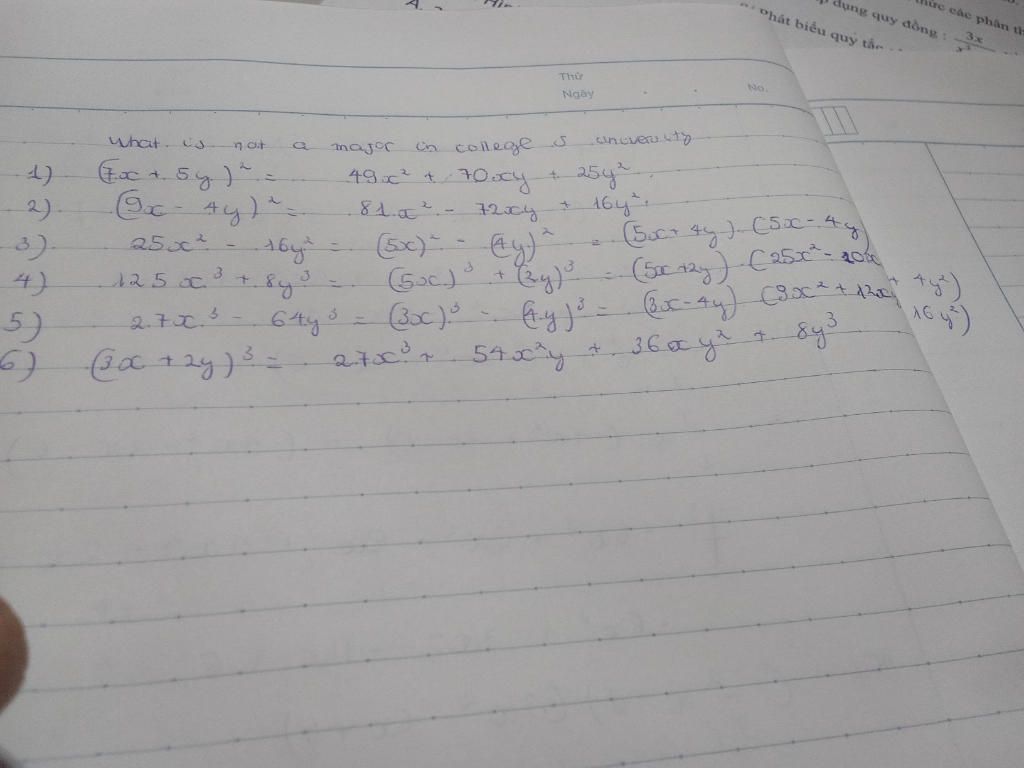 thức các phân th
dụng quy đồng : 3x
phát biểu quy tắc
Thứ
Ngày
No.
What is not a major in college s university
1) (7x + 5y)² = 49x² + 70xy + 25y².
2) (9x - 4y)² = 81x² - 72xy + 16y².
3) 25x² - 16y² = (5x)² - (4y)² = (5x + 4y) (5x - 4y)
4) 125x³ + 8y³ = (5x)³ + (2y)³ = (5x + 2y) (25x² - 10x + 4y²)
5) 27x³ - 64y³ = (3x)³ - (4y)³ = (3x - 4y) (9x² + 12xy 16y²)
6) (3x + 2y)³ = 27x³ + 54x²y + 36xy² + 8y³